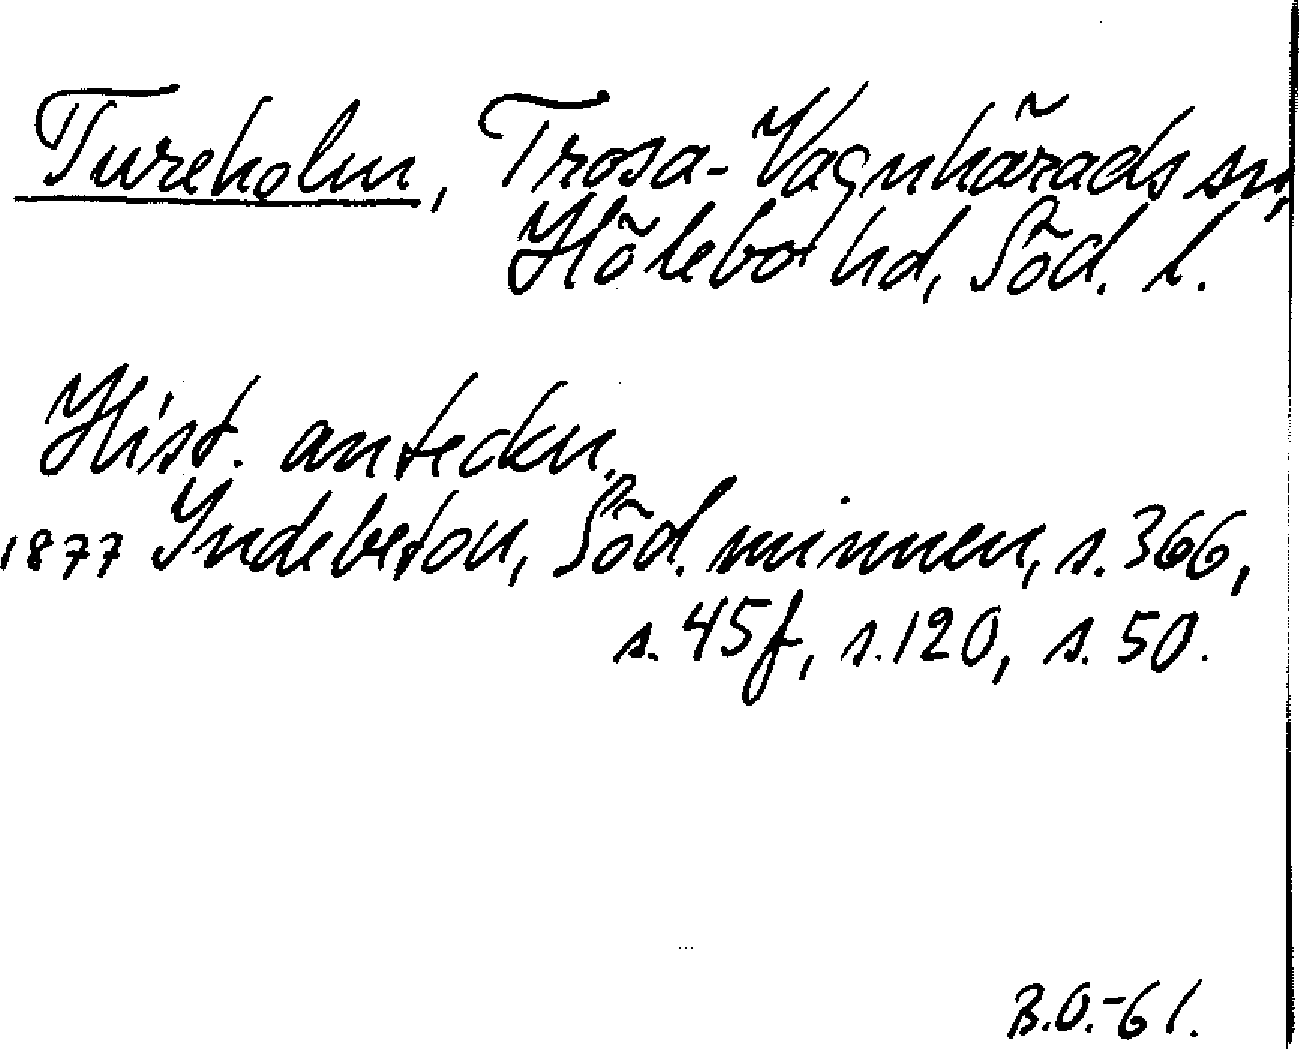 Tureholm, Trosa-Vagnhärads sn,
Hölebo hd, Söd. l.
Hist. anteckn.
1877 Indebetou, Söd. minnen, s. 366,
s. 45f, s. 120, s. 50.
B.O.-61.